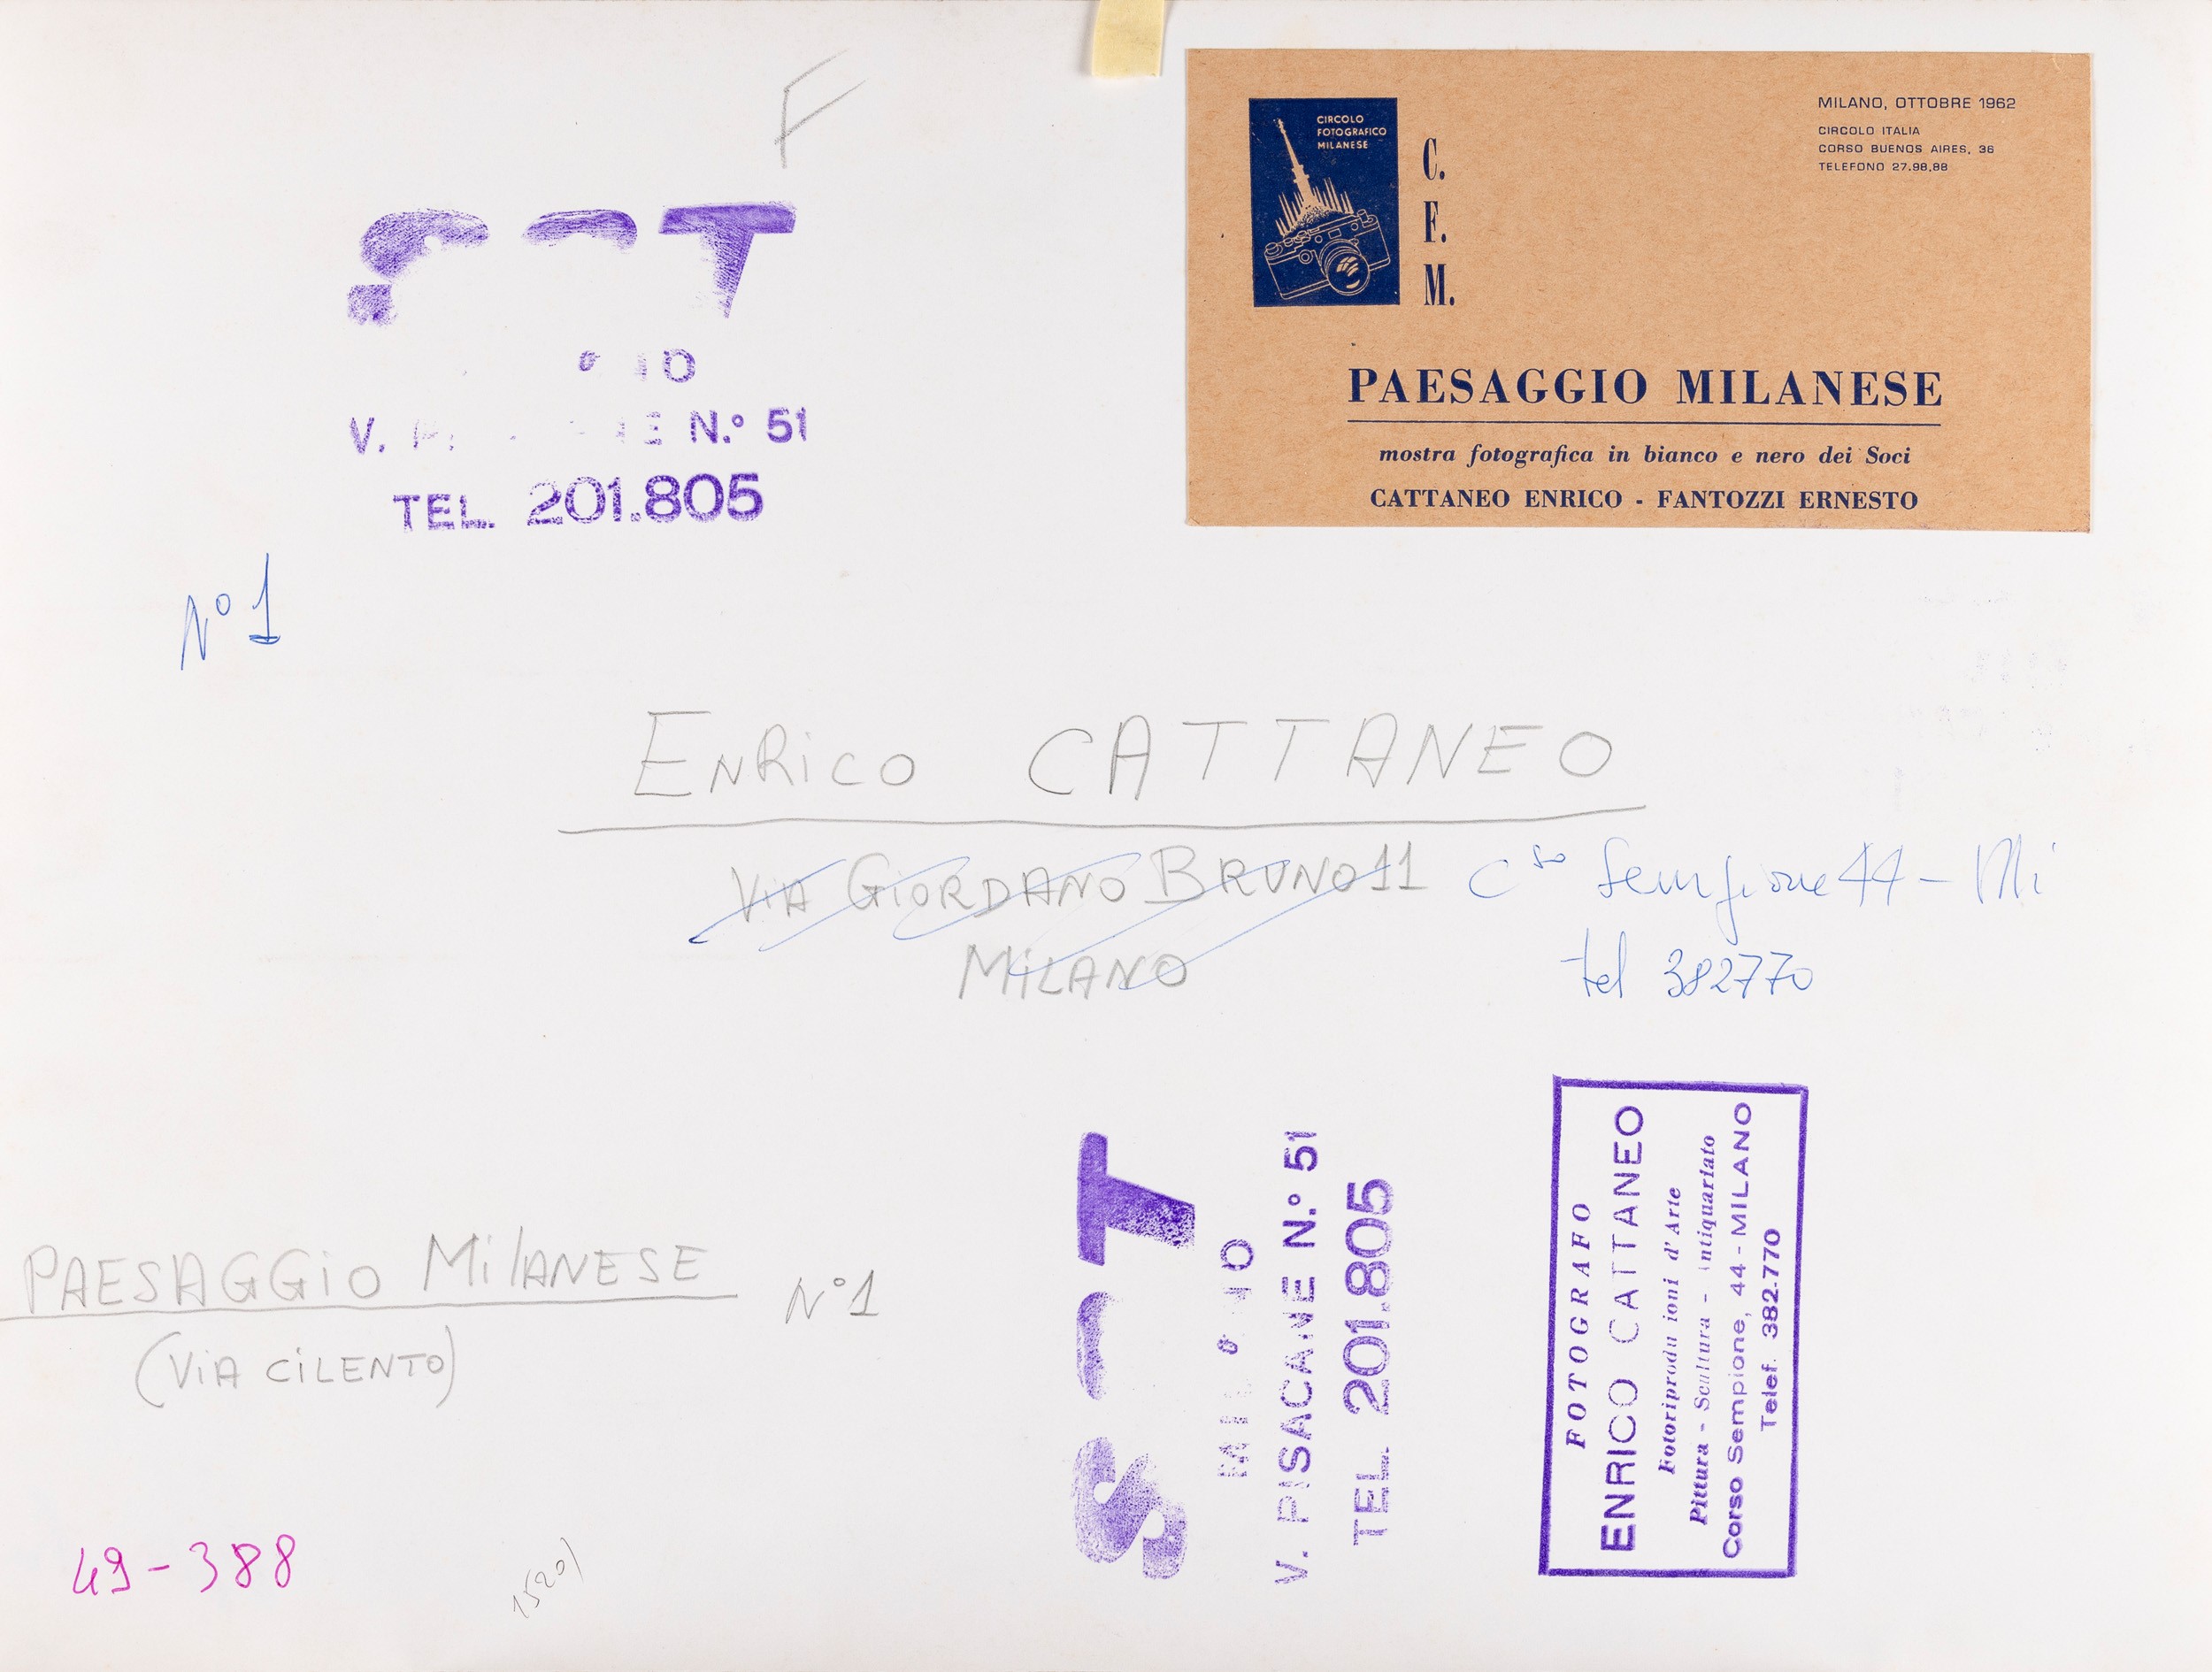 F
T
V. N.º 51
TEL. 201.805
CIRCOLO
FOTOGRAFICO
MILANESE
C.
F.
M.
MILANO, OTTOBRE 1962
CIRCOLO ITALIA
CORSO BUENOS AIRES, 36
TELEFONO 27.98.88
PAESAGGIO MILANESE
mostra fotografica in bianco e nero dei Soci
CATTANEO ENRICO - FANTOZZI ERNESTO
Nº 1
ENRICO CATTANEO
VIA GIORDANO BRUNO 11
MILANO
C.so Sempione 44 - Mi
tel 382770
PAESAGGIO MILANESE Nº 1
(VIA CILENTO)
49-388
S T
V. PISACANE N.º 51
TEL. 201.805
FOTOGRAFO
ENRICO CATTANEO
Fotoriproduzioni d'Arte
Pittura - Scultura - Antiquariato
Corso Sempione, 44 - MILANO
Telef. 382.770